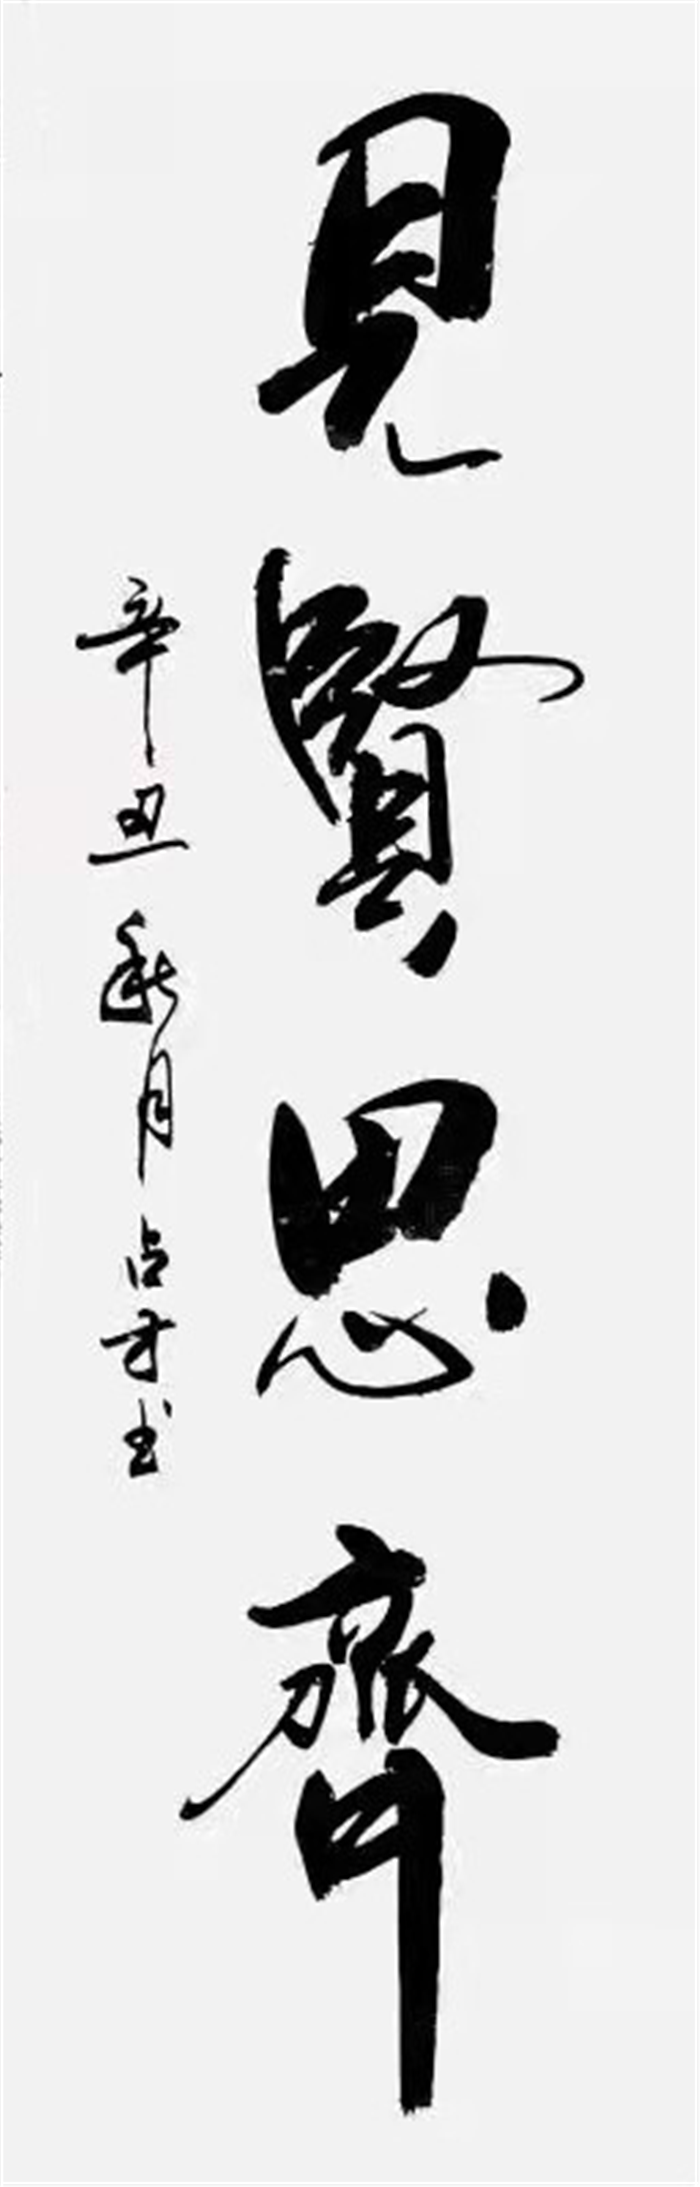 見賢思齊
辛丑秋月占才书